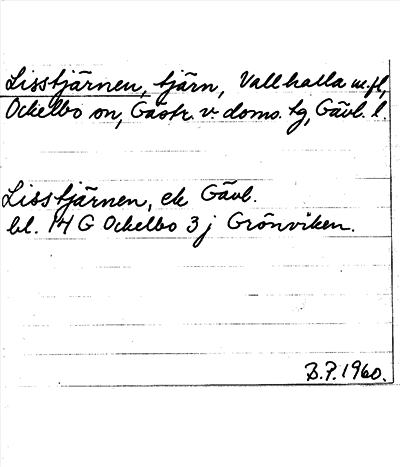 Lisstjärnen, tjärn, Vallhalla m.fl,
Ockelbo sn, Gästr. v. doms. tg, Gävl. l.
Lisstjärnen, ek Gävl.
bl. 14 G Ockelbo 3 j Grönviken.
B.P. 1960.